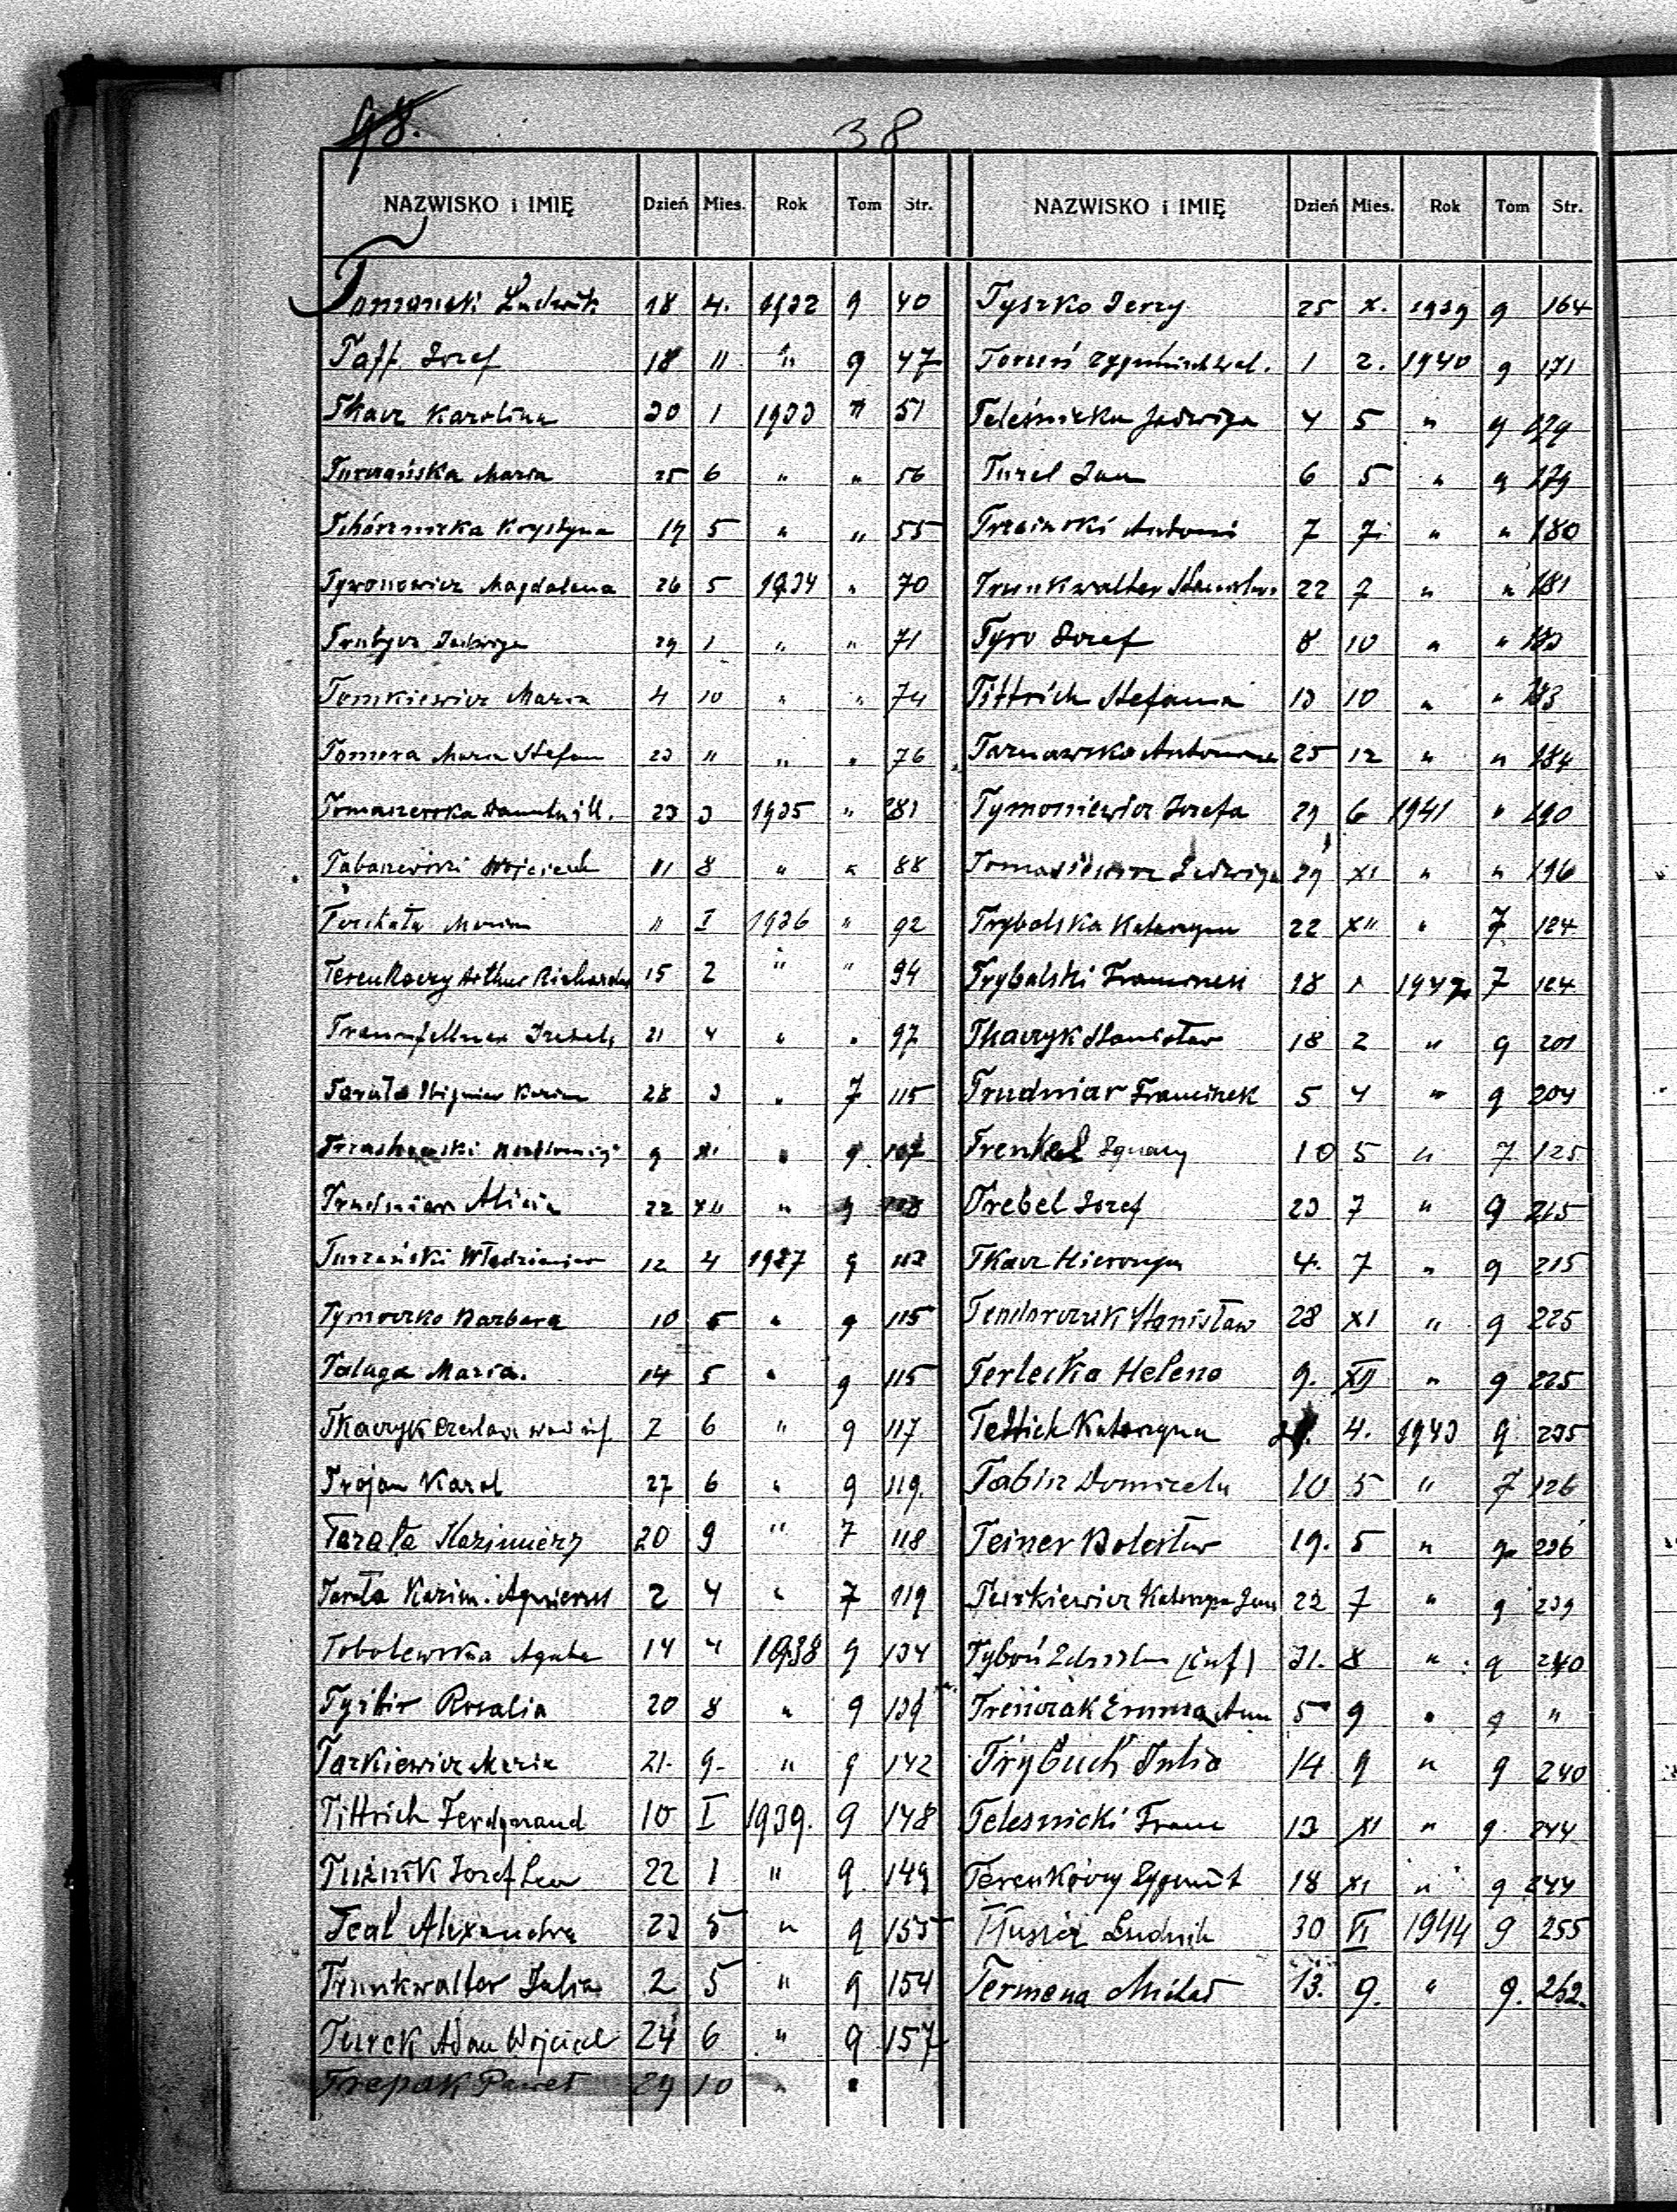 98.
38
NAZWISKO i IMIĘ Dzień Mies. Rok Tom Str.
Ludwik 18 4. 1932 9 40
Taff Józef 18 11 " 9 47
Tkacz Karolina 30 1 1933 " 51
Turzańska Maria 25 6 " " 56
Tchórznicka Krystyna 17 5 " " 55
Tywonowicz Magdalena 26 5 1934 " 70
Trubycz Jadwiga 29 1 " " 71
Tomkiewicz Maria 4 10 " " 74
Maria Stefan 23 11 " " 76
Tomaszewska 23 3 1935 " 81
Tabaszewski Wojciech 11 8 " " 88
Maria 11 I 1936 " 92
Terenkoczy Arthur Richardus 15 2 " " 94
21 4 " " 97
Tarała Zbigniew Kazim 28 3 " 7 115
9 XI " 9 107
Trudniar Alicia 22 XII " 9 108
Turzański Włodzimierz 12 4 1937 9 113
Tymoczko Barbara 10 5 " 9 115
Taluga Maria. 14 5 " 9 115
Tkaczyk 2 6 " 9 117
Trojan Karol 27 6 " 9 119.
Tarała Kazimierz 20 9 " 7 118
Tarała Kazim. 2 4 " 7 119
Tobolewska Agata 14 4 1938 9 134
Rozalia 20 8 " 9 139
Tarkiewicz Maria 21. 9. " 9 142
Tittrich Ferdynand 10 I 1939. 9 148
Tuźnik Józef Leon 22 1 " 9. 149
Teal Alexandra 23 5 " 9 155
Trunkwalter Julia 2 5 " 9 154
Turek Adam Wojciech 24 6 " 9 157
Trepak Paweł 29 10 " "
NAZWISKO i IMIĘ Dzień Mies. Rok Tom Str.
Tyszko Jerzy 25 X. 1939 9 164
1 2. 1940 9 171
Teleśnicka Jadwiga 4 5 " 9 179
Turel Jan 6 5 " 9 179
Antoni 7 7. " " 180
Trunkwalter Stanisław 22 7 " " 181
Tyro Józef 8 10 " " 183
Tittrich Stefania 13 10 " " 183
Tarnawska Antonina 25 12 " " 184
Tymoniewicz Józefa 29 6 1941 " 190
Jadwiga 29 XI " " 196
Trybalska Katarzyna 22 XII " 7 124
Trybalski Franciszek 18 1 1942 7 124
Tkaczyk Stanisław 18 2 " 9 201
Trudniar Franciszek 5 4 " 9 204
Trenkel Ignacy 10 5 " 7 125
Trebel Józef 23 7 " 9 215
Tkacz Hieronym 4. 7 " 9 215
Tendorczuk Stanisław 28 XI " 9 225
Terlecka Helena 9. XII " 9 225
Tettich Katarzyna 4. 1943 9 235
Tabisz Domicela 10 5 " 7 126
Teiner Bolesław 19. 5 " 9 236
Turkiewicz Katarzyna 22 7 " 9 239
Tyboń Zdzisław (inf) 31. 8 " 9 240
Treńczak Emma Anna 5 9 " 9 "
Trybuch Julia 14 9 " 9 240
Telesnicki Franc 13 XI " 9 244
Terenkoczy Zygmunt 18 XI " 9 244
Tłuścik Ludwik 30 VI 1944 9 255
Termena Michał 13. 9. " 9. 262.